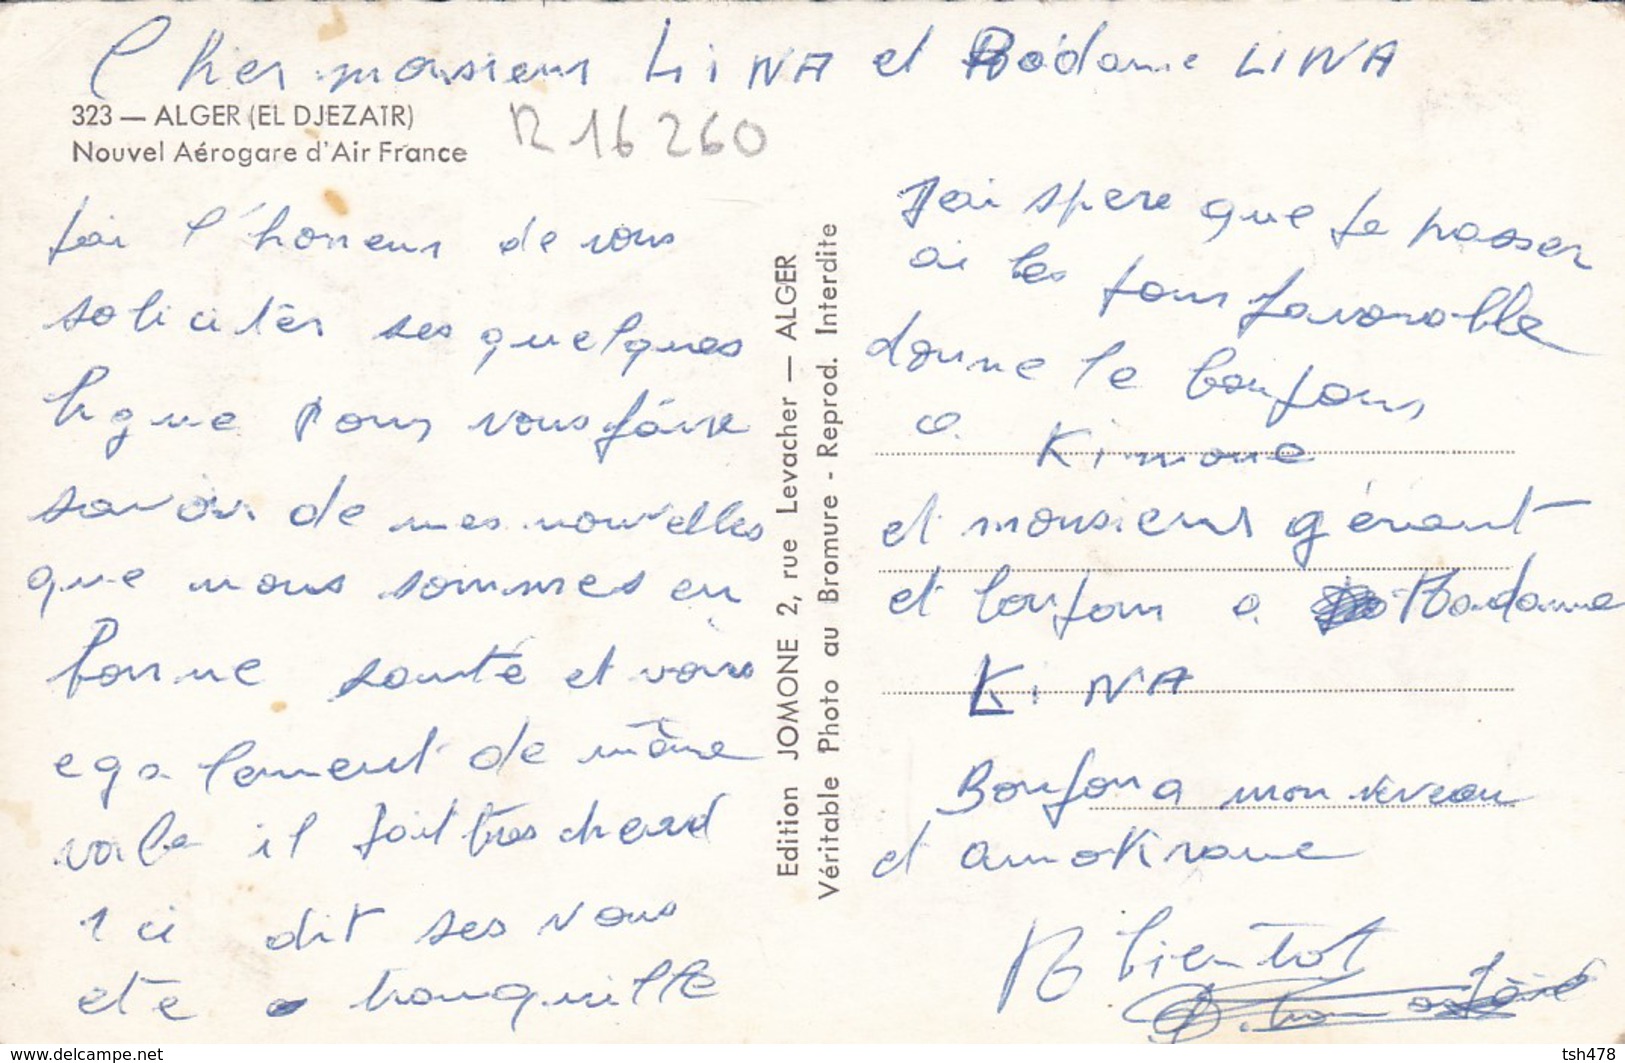 Cher monsieur LiNA et Madame LINA
323 — ALGER (EL DJEZAIR)
Nouvel Aérogare d'Air France
R 16260
jai l'honneur de vous
soliciter ses quelques
ligne pour vous faire
savoir de mes nouvelles
que nous sommes en
bonne santé et vous
egalement de même
voila il fait tres cheaud
ici dit ses vous
ete tranquille
Edition JOMONE 2, rue Levacher — ALGER
Véritable Photo au Bromure - Reprod. Interdite
Jai spere que je passer
ai les jour favorable
donne le bonjour
a Kimone
et monsieur gérant
et bonjour a Madame
KiNA
Bonjour a mon neveau
et amokrane
A bientot
www.delcampe.net
tsh478